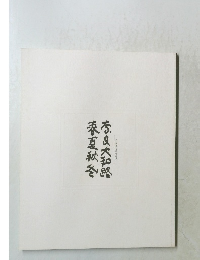 奈良大和路
春夏秋冬